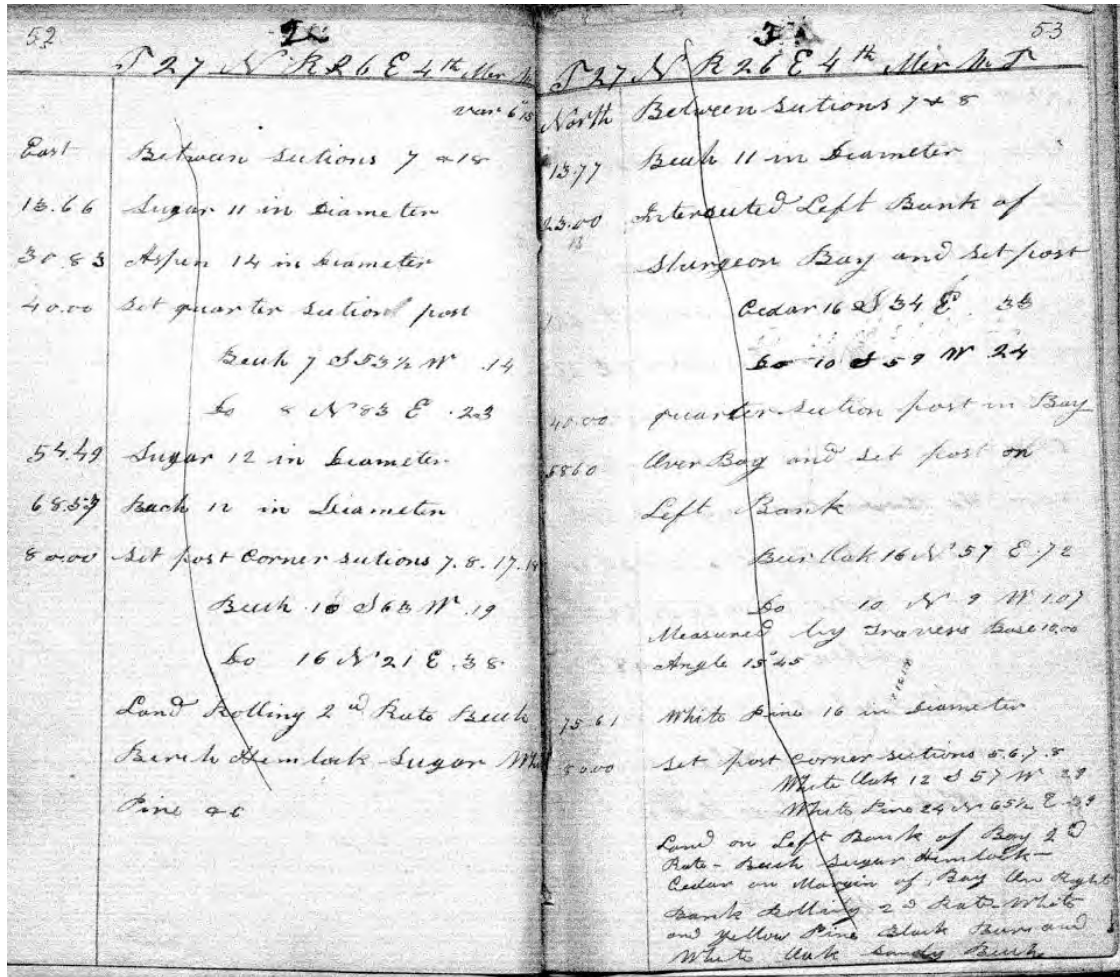 52
2
T 27 N R 26 E 4th Mer
var 6° 15
East Between Sections 7 & 18
13.66 Sugar 11 in Diameter
30.83 Aspen 14 in Diameter
40.00 Set quarter Section post
Beech 7 S 53½ W .14
Do 8 N 83 E .23
54.49 Sugar 12 in Diameter
68.57 Beach 12 in Diameter
80.00 Set post Corner sections 7.8.17.18
Beech 10 S 63 W .19
Do 16 N 21 E .38
Land Rolling 2d Rate Beech
Birch Hemlock Sugar
Pine &c
53
3
T 27 N R 26 E 4th Mer
North Between Sections 7 & 8
13.77 Beech 11 in Diameter
23.00 Intersected Left Bank of
Sturgeon Bay and Set post
Cedar 16 S 34 E 33
Do 10 S 59 W 24
40.00 quarter Section post in Bay
58.60 Over Bay and Set post on
Left Bank
Bur Oak 16 N 57 E .72
Do 10 N 9 W 1.07
Measured by Travers Base 10.00
Angle 15°45
75.61 White Pine 16 in Diameter
80.00 Set post Corner sections 5.6.7.8
White Oak 12 S 57 W 29
White Pine 24 N 65½ E 39
Land on Left Bank of Bay 2d
Rate - Beech Sugar Hemlock -
Cedar on Margin of Bay On Right
Bank Rolling 2d Rate White
and Yellow Pine Black Burr and
White Oak Sandy Beech